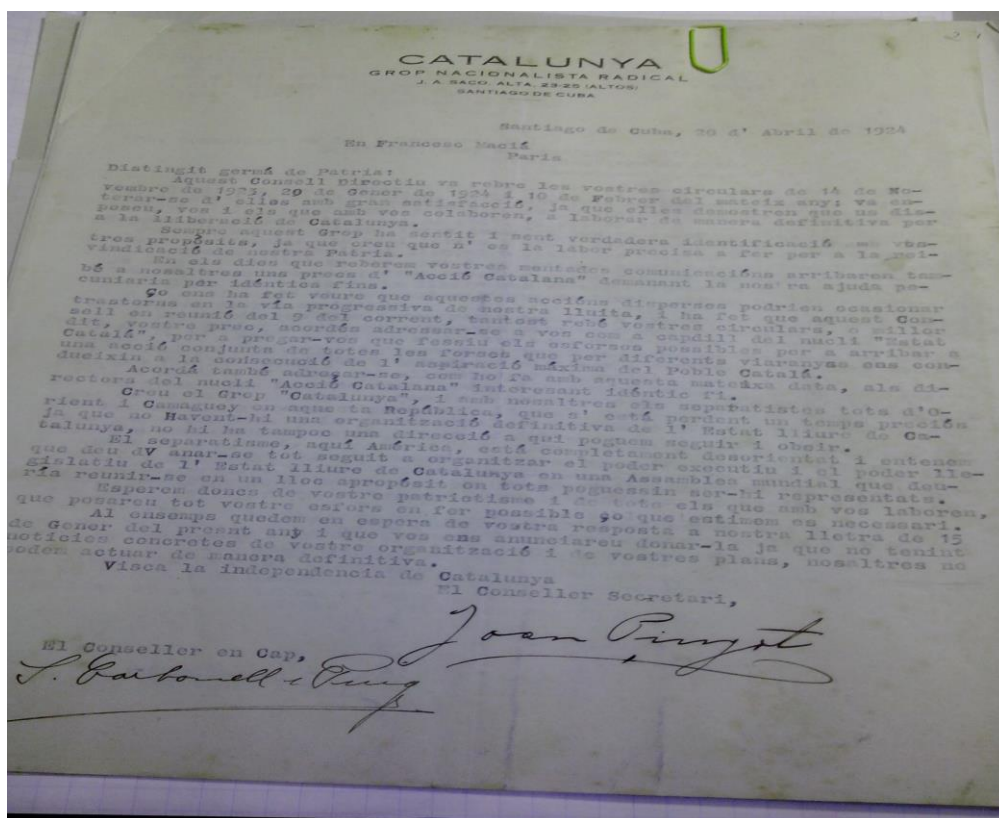 CATALUNYA
GROP NACIONALISTA RADICAL
J. A. SACO, ALTA, 23-25 (ALTOS)
SANTIAGO DE CUBA
Santiago de Cuba, 20 d' Abril de 1924
En Francesc Maciá
Paris
Distingit germá de Patria:
Aquest Consell Directiu va rebre les vostres circulars de 14 de No-
vembre de 1923, 29 de Gener de 1924 i 10 de Febrer del mateix any; va en-
terar-se d' elles amb gran satisfacció, ja que elles demostren que us dis-
poseu, vos i els que amb vos colaboren, a laborar de manera definitiva per
a la lliberació de Catalunya.
Sempre aquest Grop ha sentit i sent verdadera identificació vos-
tres propósits, ja que creu que n' es la labor precisa a fer per a la rei-
vindicació de nostra Patria.
En els dies que reberem vostres mentades comunicacións arribaren tam-
bé a nosaltres uns precs d' "Acció Catalana" demanant la nostra ajuda pe-
cuniaria per idéntics fins.
Ço ens ha fet veure que aquestes accións disperses podrien ocasionar
trastorns en la via progressiva de nostra lluita, i ha fet que aquest Con-
sell en reunió del 9 del corrent, tantost rebé vostres circulars, o millor
dit, vostre prec, acordés adressar-se a vos com a capdill del nucli "Estat
Catalá", per a pregar-vos que fessiu els esforsos possibles per a arribar a
una acció conjunta de totes les forses que per diferents viaranys ens con-
dueixin a la consecució de l' aspiració máxima del Poble Catalá.
Acordá també adreçar-se, com ho fa amb aquesta mateixa data, als di-
rectors del nucli "Acció Catalana" interesant idéntic fi.
Creu el Grop "Catalunya", i amb nosaltres els separatistes tots d'O-
rient i Camaguey en aque ta República, que s' está perdent un temps preciós
ja que no Havent-hi una organització definitiva de l' Estat lliure de Ca-
talunya, no hi ha tampoc una direcció a qui poguem seguir i obeir.
El separatisme, aquí América, está completament desorientat i entenem
que deu dV anar-se tot seguit a organitzar el poder executiu i el poder lle-
gislatiu de l' Estat lliure de Catalunya en una Assamblea mundial que deu-
ría reunir-se en un lloc apropósit on tots poguessin ser-hi representats.
Esperem doncs de vostre patriotisme i de tots els que amb vos laboren,
que posareu tot vostre esfors en fer possible ço que estimem es necessari.
Al ensemps quedem en espera de vostra resposta a nostra lletra de 15
de Gener del present any i que vos ens anunciareu donar-la ja que no tenint
noticies concretes de vostre organització i de vostres plans, nosaltres no
podem actuar de manera definitiva.
Visca la independencia de Catalunya
El Conseller Secretari,
Joan Pinyot
El Conseller en Cap,
S. Carbonell i Puig